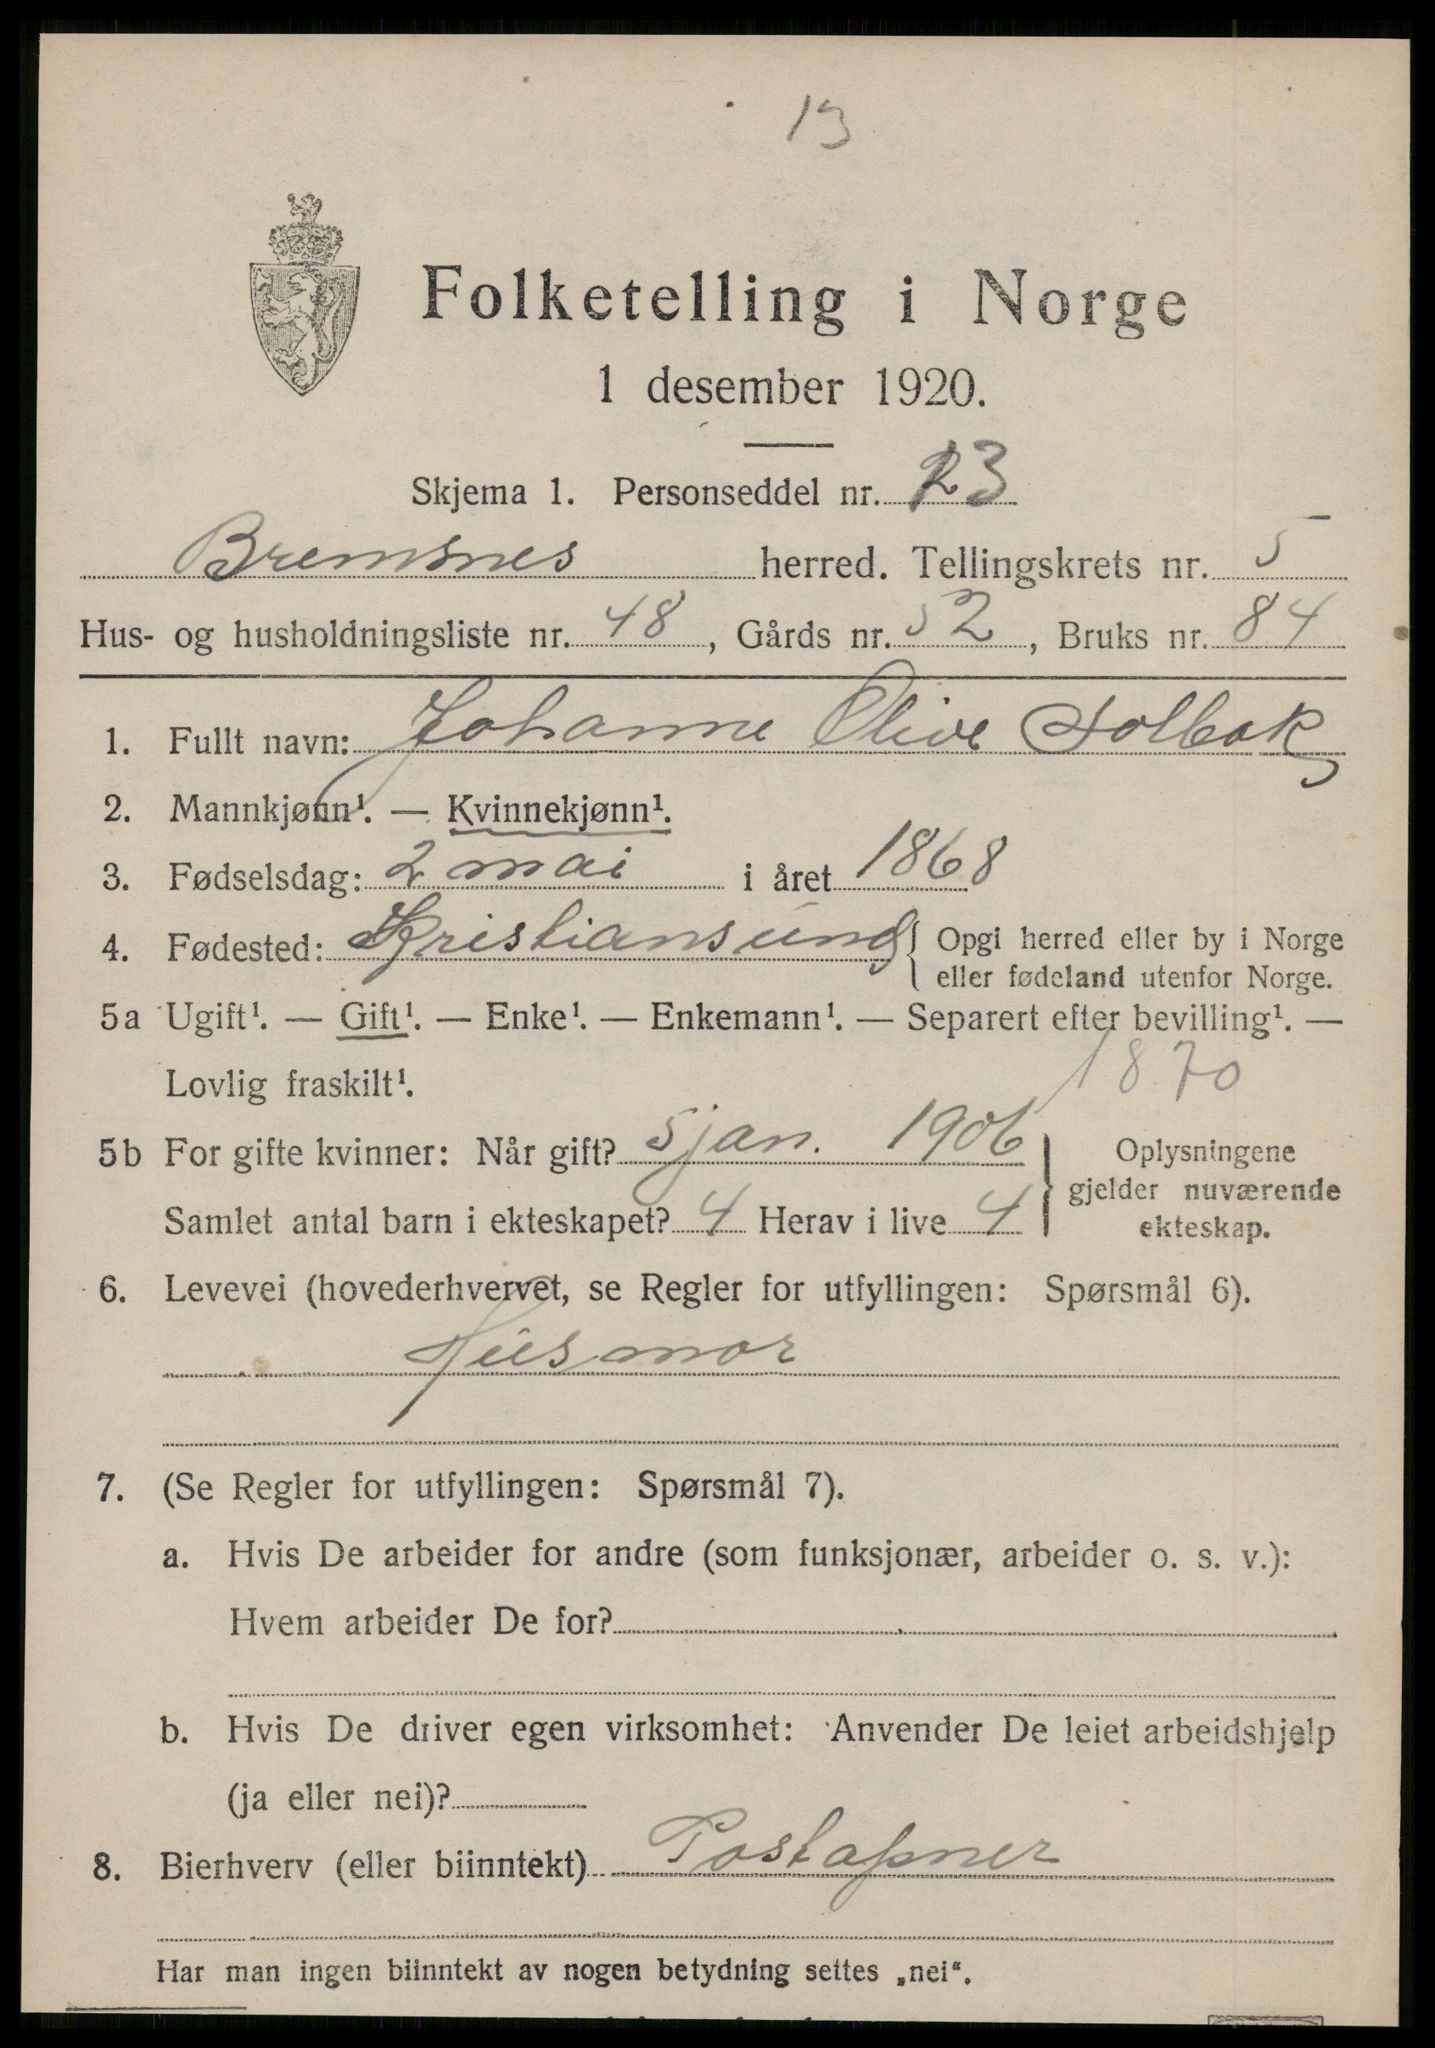 13
Folketelling i Norge
1 desember 1920.
Skjema 1. Personseddel nr. 23
Bremsnes herred. Tellingskrets nr. 5
Hus- og husholdningsliste nr. 48, Gårds nr. 52, Bruks nr. 84
1. Fullt navn: Johanne Olive Solbak
2. Mannkjønn¹. — Kvinnekjønn¹.
3. Fødselsdag: 2 mai i året 1868
4. Fødested: Kristiansund { Opgi herred eller by i Norge
eller fødeland utenfor Norge.
5a Ugift¹. — Gift¹. — Enke¹. — Enkemann¹. — Separert efter bevilling¹. —
Lovlig fraskilt¹. 1870
5b For gifte kvinner: Når gift? 5 jan. 1906 } Oplysningene
gjelder nuværende
Samlet antal barn i ekteskapet? 4 Herav i live 4 ekteskap.
6. Levevei (hovederhvervet, se Regler for utfyllingen: Spørsmål 6).
Husmor
7. (Se Regler for utfyllingen: Spørsmål 7).
a. Hvis De arbeider for andre (som funksjonær, arbeider o. s. v.):
Hvem arbeider De for?
b. Hvis De driver egen virksomhet: Anvender De leiet arbeidshjelp
(ja eller nei)?
8. Bierhverv (eller biinntekt) Postapner
Har man ingen biinntekt av nogen betydning settes „nei“.